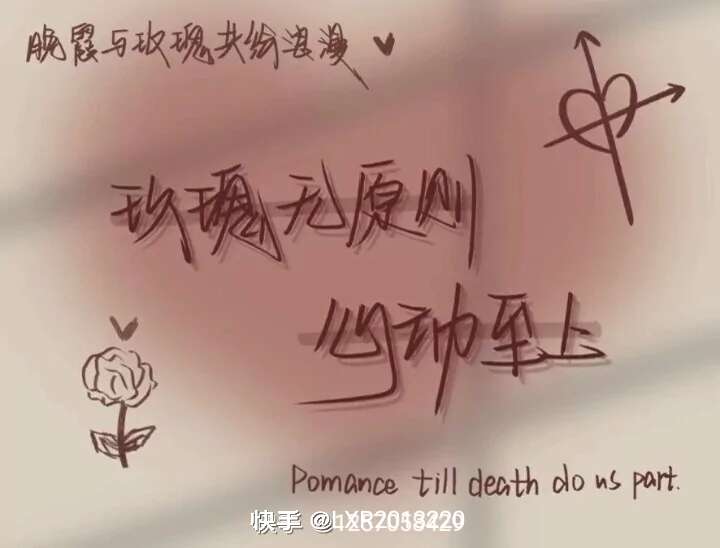 晚霞与玫瑰共绘浪漫
玫瑰无原则
心动至上
Pomance till death do us part.
快手